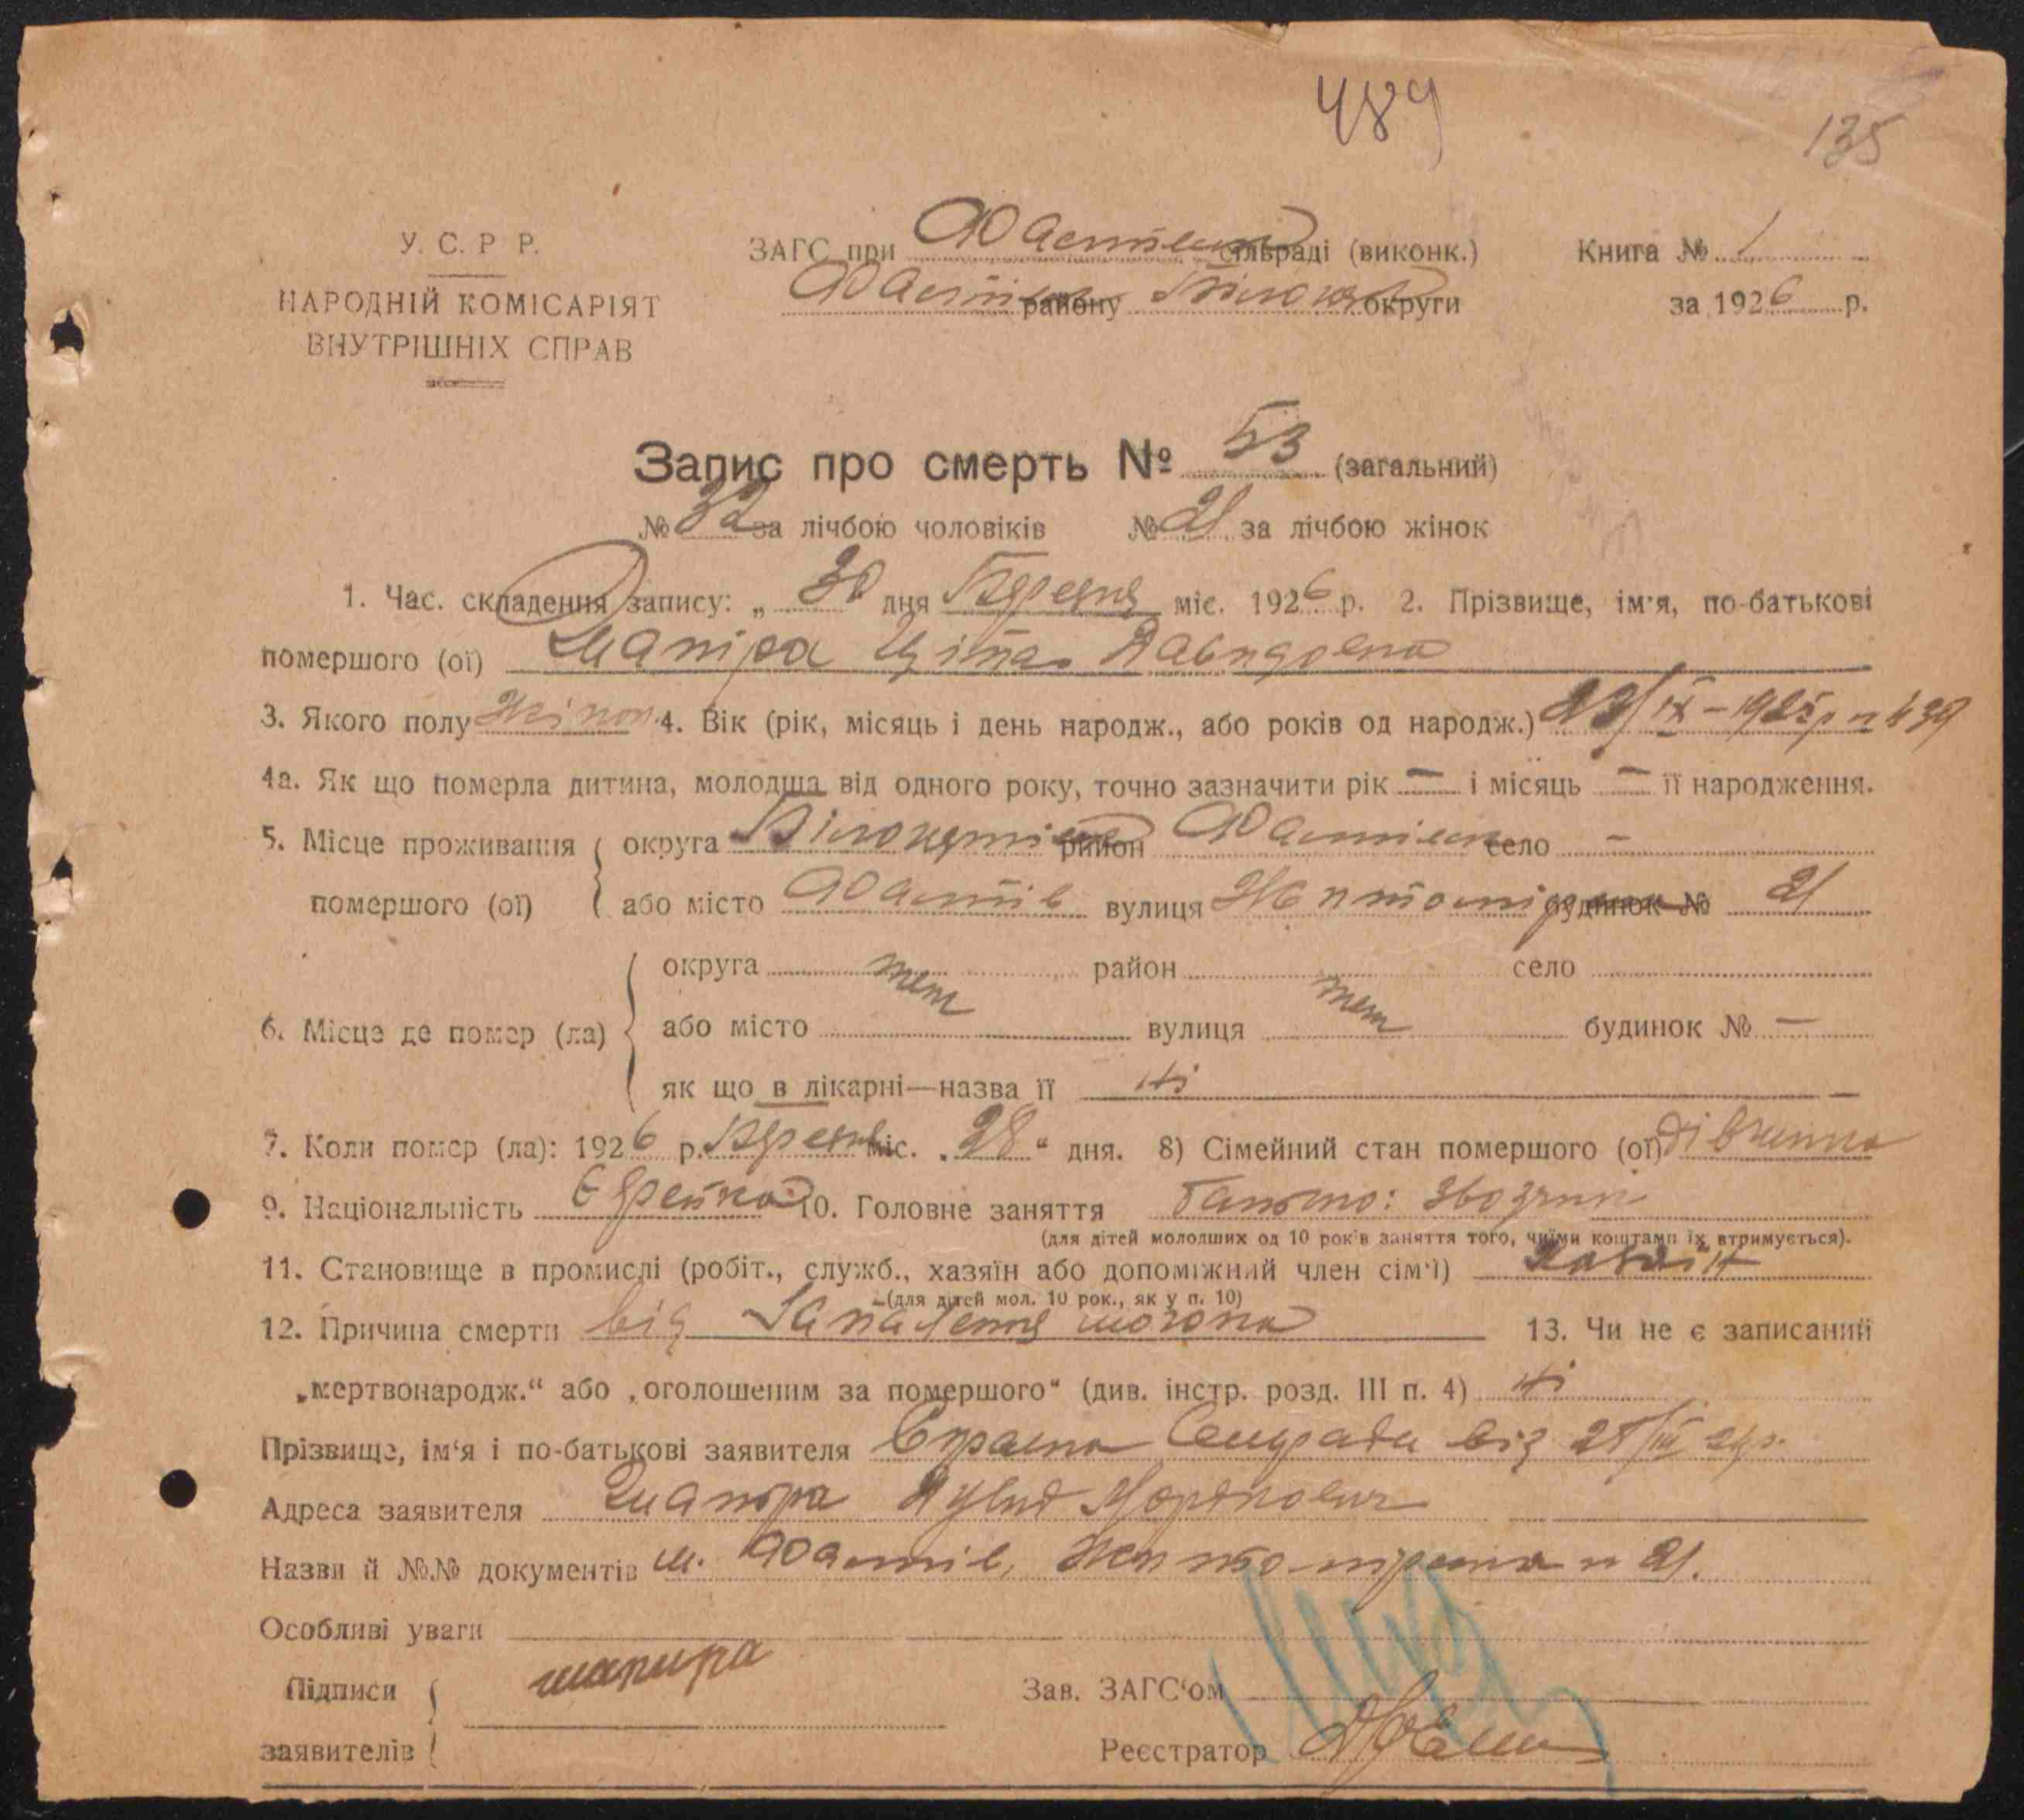 489
135
У. С. Р Р.
НАРОДНІЙ КОМІСАРІЯТ
ВНУТРІШНІХ СПРАВ
ЗАГС при Фастівськ сільраді (виконк.)
Фастівськ району Білоцерк округи
Книга № 1
за 1926 р.
Запис про смерть № 53 (загальний)
№ 32 за лічбою чоловіків № 21 за лічбою жінок
1. Час. складення запису: „ 30 дня Березня міс. 1926 р. 2. Прізвище, ім'я, по-батькові
помершого (ої) Шапіра Давидовна
3. Якого полу Жіноч. 4. Вік (рік, місяць і день народж., або років од народж.) 23/ІХ – 1925 р
4а. Як що померла дитина, молодша від одного року, точно зазначити рік — і місяць — її народження.
5. Місце проживання округа Білоцерківськ район Фастівськ село –
помершого (ої) або місто Фастів вулиця Житомірська будинок № 21
округа тет район село
6. Місце де помер (ла) або місто вулиця тет будинок № —
як що в лікарні—назва її Ні
7. Коли помер (ла): 1926 р. Березня міс. „28“ дня. 8) Сімейний стан помершого (ої) дівчина
9. Національність Єврейка 10. Головне заняття Батько: Звозчик
(для дітей молодших од 10 років заняття того, чиїми коштами їх втримується).
11. Становище в промислі (робіт., служб., хазяїн або допоміжний член сім'ї) хазяїн
(для дітей мол. 10 рок., як у п. 10)
12. Причина смерти від Запалення мозока 13. Чи не є записаний
„мертвонародж.“ або „оголошеним за помершого“ (див. інстр. розд. III п. 4) Ні
Прізвище, ім‘я і по-батькові заявителя від
Адреса заявителя Шапіра Давид Мордкович
Назви й №№ документів м. Фастів, Житомірська 21.
Особливі уваги
Підписи шапира Зав. ЗАГС‘ом
заявителів Реєстратор